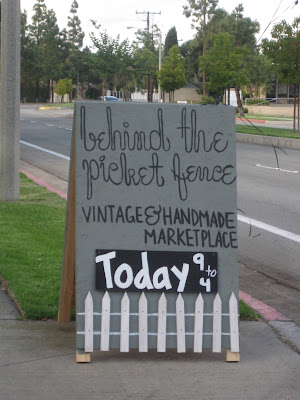 behind the
picket fence
VINTAGE & HANDMADE
MARKETPLACE
Today 9 to 4